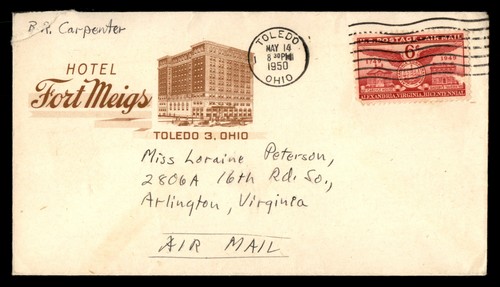 B.R. Carpenter
HOTEL
Fort Meigs
TOLEDO 3, OHIO
TOLEDO
MAY 14
8 30 PM
1950
OHIO
U.S. POSTAGE - AIR MAIL
6¢
1749
1949
ALEXANDRIA, VIRGINIA, BICENTENNIAL
Miss Loraine Peterson,
2806A 16th Rd. So.,
Arlington, Virginia
AIR MAIL